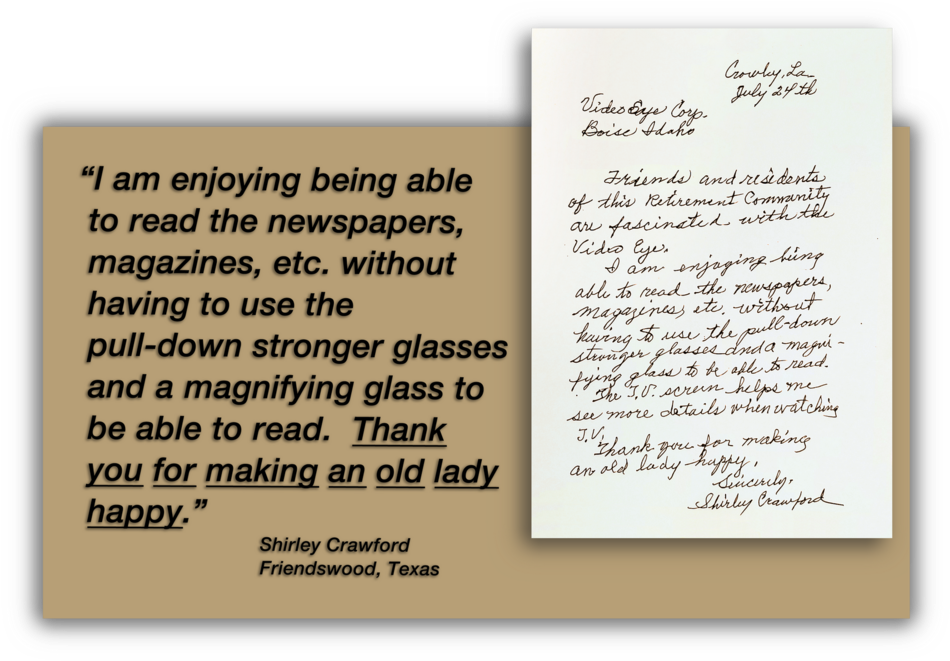 “I am enjoying being able
to read the newspapers,
magazines, etc. without
having to use the
pull-down stronger glasses
and a magnifying glass to
be able to read. Thank
you for making an old lady
happy.”
Shirley Crawford
Friendswood, Texas
Crowley, La.
July 24th
Video Eye Corp.
Boise Idaho
Friends and residents
of this Retirement Community
are fascinated with the
Video Eye.
I am enjoying being
able to read the newspapers,
magazines, etc. without
having to use the pull-down
stronger glasses and a magni-
fying glass to be able to read.
The T.V. screen helps me
see more details when watching
T.V.
Thank you for making
an old lady happy.
Sincerely,
Shirley Crawford